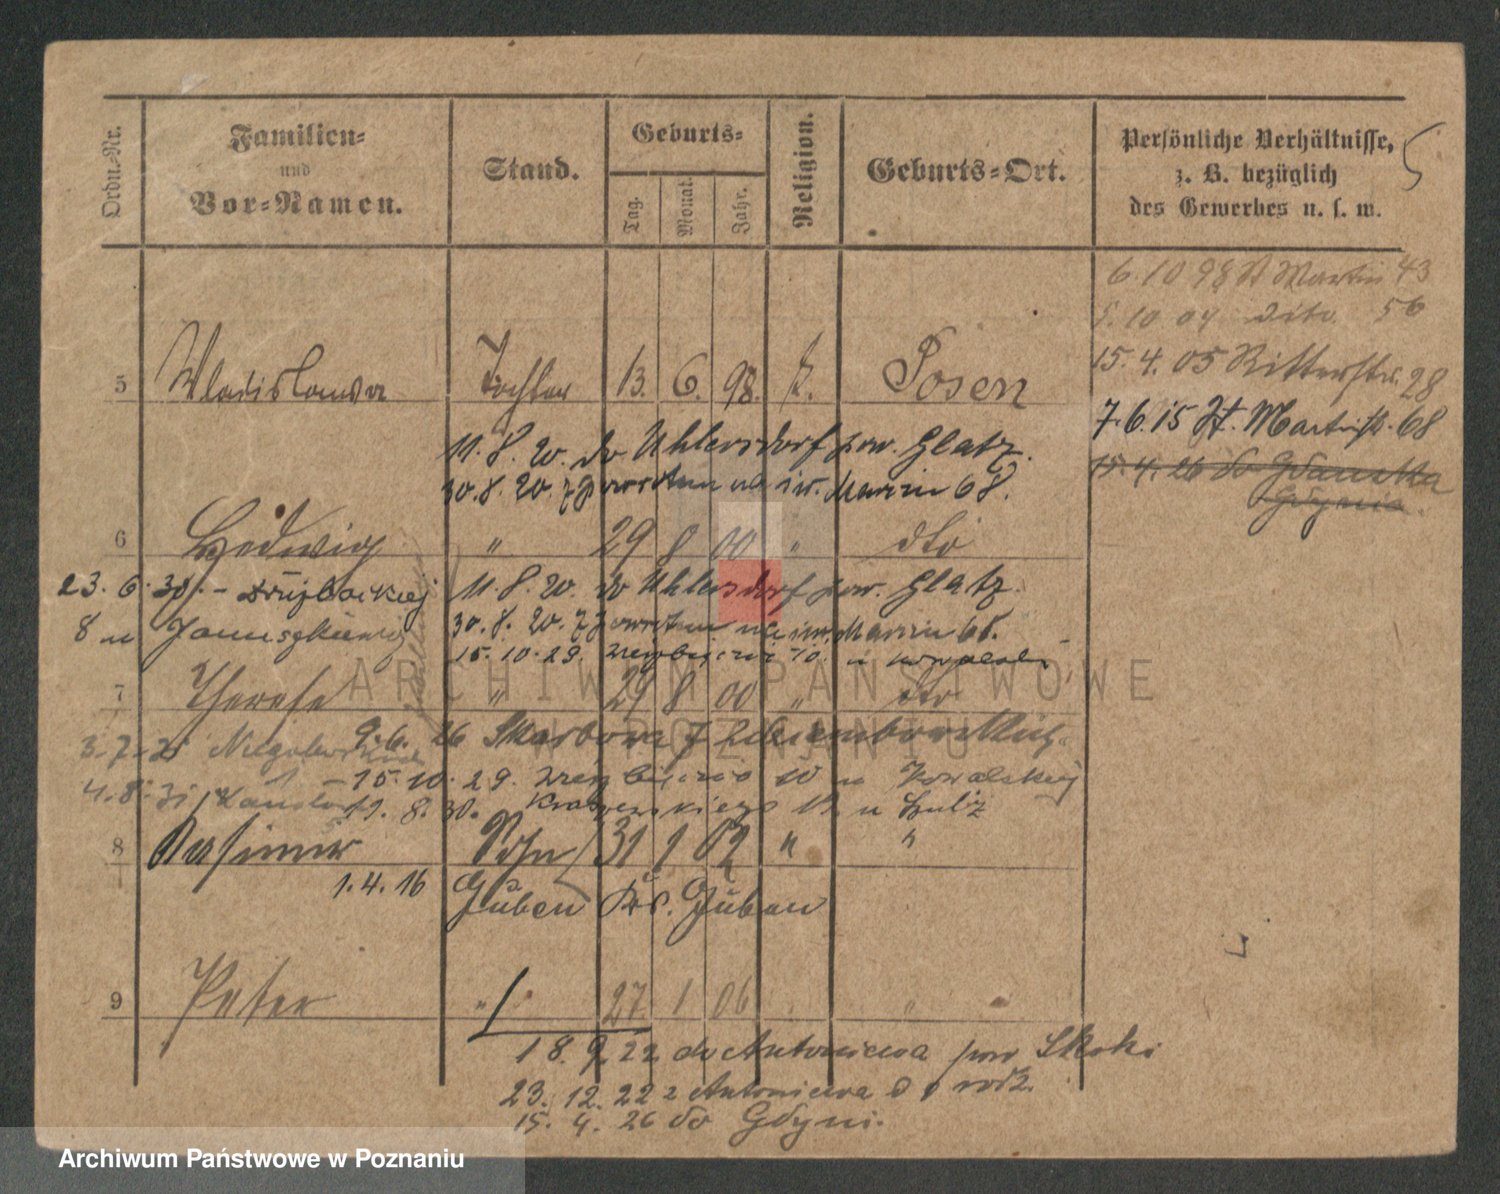 Ordn.-Nr.
Familien-
und
Vor-Namen.
Stand.
Geburts-
Tag.
Monat.
Jahr.
Religion.
Geburts-Ort.
Persönliche Verhältnisse,
z. B. bezüglich
des Gewerbes u. s. w.
5
6.10 98 St Martin 43
10 04 dito 56
15.4.05 Ritterstr. 28
7.6.15 St. Martinstr. 68
15.4.26 do Gdańska
Gdynia
5 Wladislawa Tochter 13. 6. 98. k. Posen
11.8.20. do Uhlersdorf pow. Glatz.
30.8.20. z powrotem na św. Marcin 68.
6 Hedwig " 29 8 00 " dto
23.6.30. -
11.8.20. do Uhlersdorf pow. Glatz.
8 u
30.8.20. z powrotem na św. Marcin 68.
15.10.29. 10 u Kowalski
7 Therese " 29 8 00 " dto
9.6.26 Skarbowa 7
3.7.
15.10.29. 10 u Kowalskiej
4.8.31
19.8.30. Kraszewskiego 12 u
8 Kasimir Sohn 31 1 02 " "
1.4.16 Guben Kr. Guben
9 Peter " 27 1 06
18.9.22 do Antoniewa pow Skoki
23.12.22 z Antoniewa do rodz.
15.4.26 do Gdyni.
ARCHIWUM PAŃSTWOWE
W POZNANIU
Archiwum Państwowe w Poznaniu